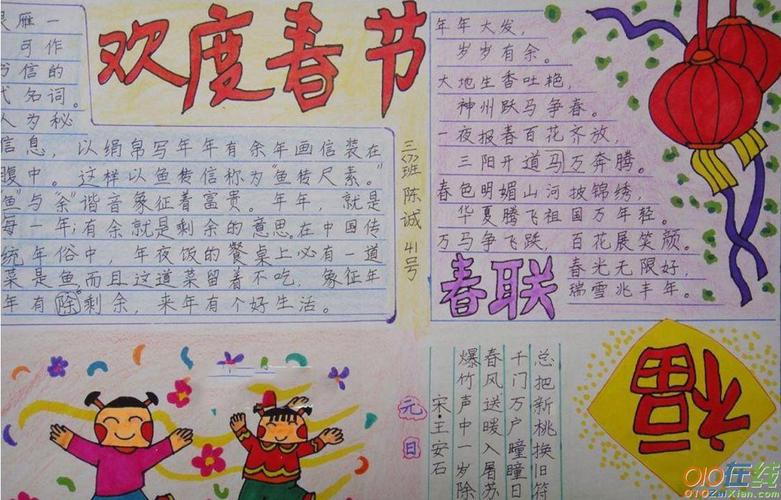 欢度春节
雁一
可作
书信的
代名词。
人为秘
信息，以绢帛写年年有余年画信装在
腹中。这样以鱼转信称为“鱼转尺素。”
鱼”与“余”谐音象征着富贵。年年，就是
每一年;有余就是剩余的意思.在中国传
统年俗中，年夜饭的餐桌上必有一道
菜是鱼,而且这道菜留着不吃，象征年
年有除剩余，来年有个好生活。
三<7>班 陈诚 41号
年年大发，
岁岁有余。
大地生香吐艳，
神州跃马争春。
一夜报春百花齐放，
三阳开道马万奔腾。
春色明媚山河披锦绣，
华夏腾飞祖国万年轻。
万马争飞跌，百花展笑颜。
春光无限好，
瑞雪兆丰年。
春联
元日
宋·王安石
爆竹声中一岁除
春风送暖入屠苏
千门万户曈曈日
总把新桃换旧符
福
010在线
010ZaiXian.com